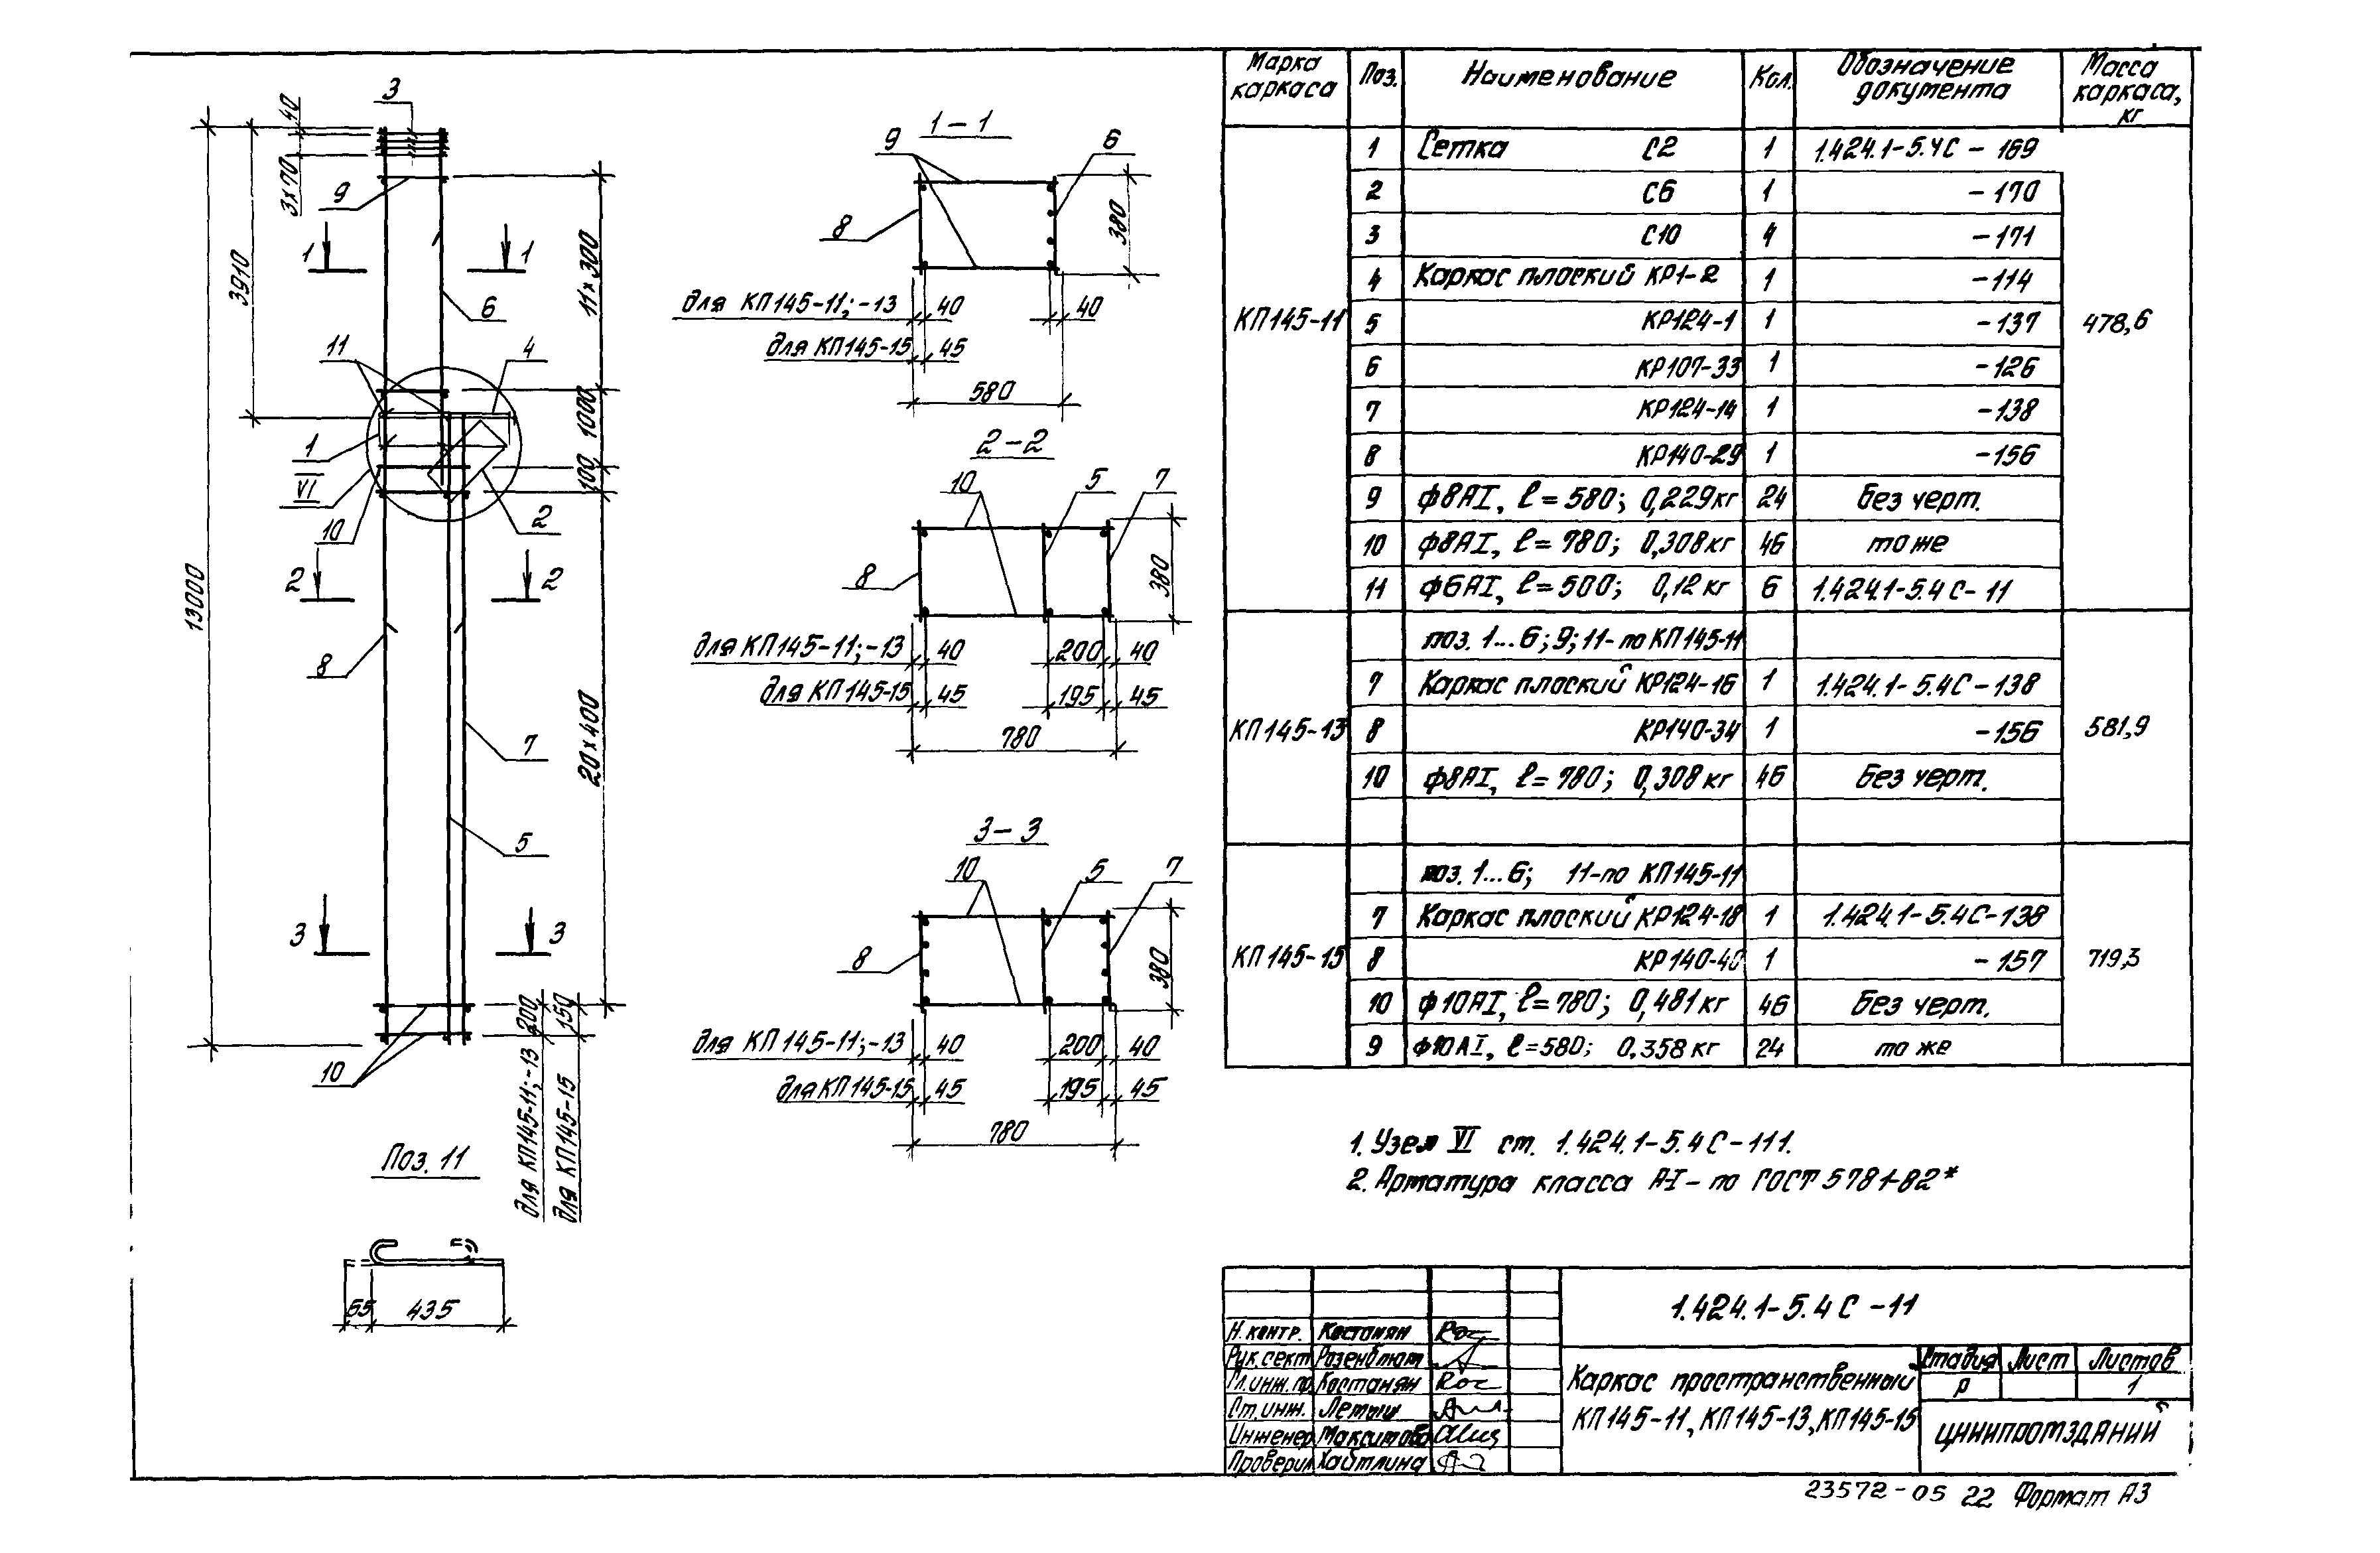 3
40
3×70
9
3910
1 1
11×300
6
11
4
1000
1
100
VI
2
10
13000
2 2
8
20×400
7
5
3 3
200
150
10
для КП145-11;-13
для КП145-15
Поз. 11
65 435
1-1
9 6
8
380
для КП145-11;-13 40 40
для КП145-15 45
580
2-2
10 5 7
8
380
для КП145-11;-13 40 200 40
для КП145-15 45 195 45
780
3-3
10 5 7
8
380
для КП145-11;-13 40 200 40
для КП145-15 45 195 45
780
Марка каркаса Поз. Наименование Кол. Обозначение документа Масса каркаса, кг
1 Сетка С2 1 1.424.1-5.4С - 169
2 С6 1 -170
3 С10 4 -171
4 Каркас плоский КР1-2 1 -114
КП145-11 5 КР124-1 1 -137 478,6
6 КР107-33 1 -126
7 КР124-14 1 -138
8 КР140-29 1 -156
9 ф8АI, ℓ=580; 0,229кг 24 Без черт.
10 ф8АI, ℓ=780; 0,308кг 46 то же
11 ф6АI, ℓ=500; 0,12кг 6 1.424.1-5.4С-11
поз. 1...6; 9; 11-по КП145-11
7 Каркас плоский КР124-16 1 1.424.1-5.4С-138
КП145-13 8 КР140-34 1 -156 581,9
10 ф8АI, ℓ=780; 0,308кг 46 Без черт.
поз. 1...6; 11-по КП145-11
7 Каркас плоский КР124-18 1 1.424.1-5.4С-138
КП145-15 8 КР140-40 1 -157 719,3
10 ф10АI, ℓ=780; 0,481кг 46 Без черт.
9 ф10АI, ℓ=580; 0.358кг 24 то же
1. Узел VI см. 1.424.1-5.4С-111.
2. Арматура класса АI-по ГОСТ 5781-82*
1.424.1-5.4С-11
Н.контр. Костанян
Рук.сект Розенблюм
Гл.инж.пр. Костанян
Ст.инж. Летыш
Инженер Максимова
Проверил Хайтлина
Каркас пространственный
КП145-11, КП145-13, КП145-15
Стадия Лист Листов
Р 1
ЦНИИПРОМЗДАНИЙ
23572-05 22 Формат А3